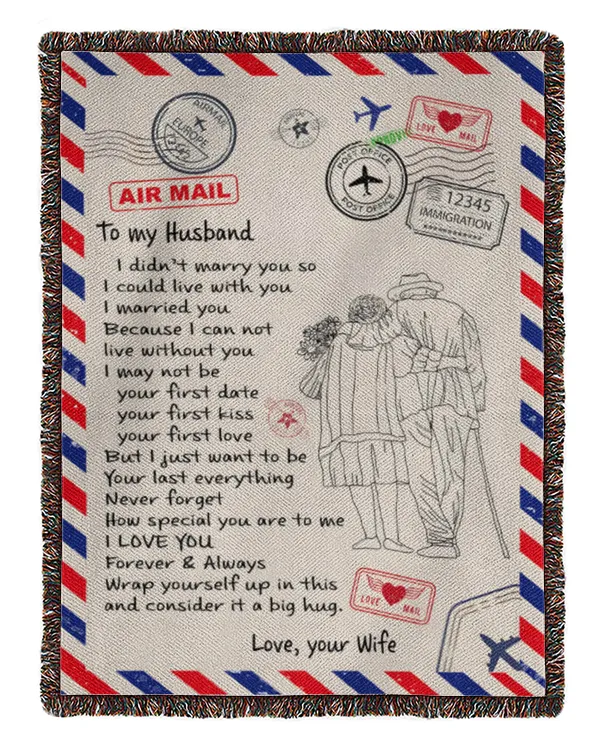 AIRMAIL
EUROPE
LOVE MAIL
POST OFFICE
POST OFFICE
12345
IMMIGRATION
AIR MAIL
To my Husband
I didn't marry you so
I could live with you
I married you
Because I can not
live without you
I may not be
your first date
your first kiss
your first love
But I just want to be
Your last everything
Never forget
How special you are to me
I LOVE YOU
Forever & Always
Wrap yourself up in this
and consider it a big hug.
LOVE MAIL
Love, your Wife